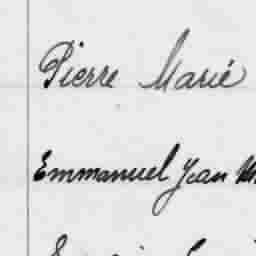 Pierre Marié
Emmanuel Jean